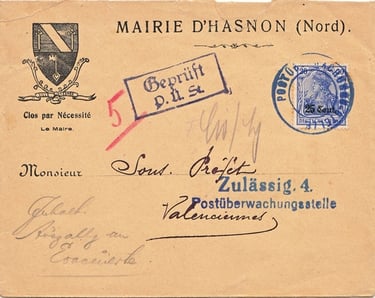 MAIRIE D'HASNON (Nord).
Geprüft
P.Ü.St.
25 Cent.
5
Clos par Nécessité
Le Maire.
Monsieur
Sous. Préfet
Zulässig. 4.
Postüberwachungsstelle
Valenciennes